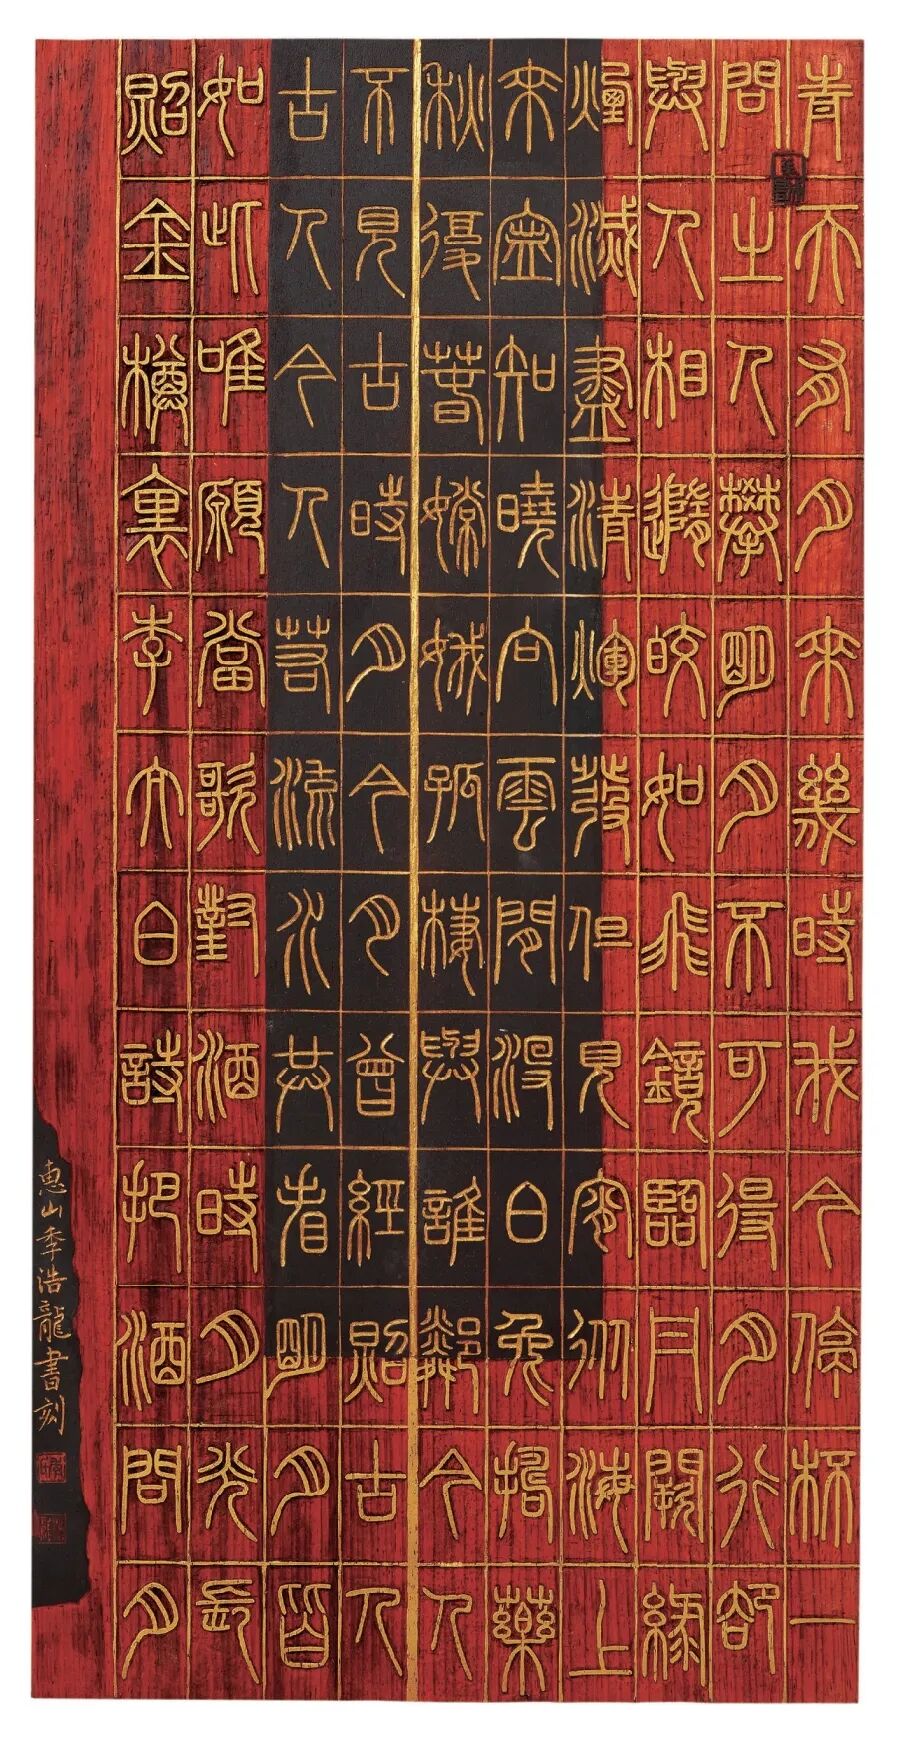 青天有月來幾時我今停杯一
問之人攀明月不可得月行卻
與人相隨皎如飛鏡臨丹闕綠
煙滅盡清輝發但見宵從海上
來寧知曉向雲間沒白兔搗藥
秋復春嫦娥孤棲與誰鄰今人
不見古時月今月曾經照古人
古人今人若流水共看明月皆
如此唯願當歌對酒時月光長
照金樽裏李太白詩把酒問月
惠山季浩龍書刻